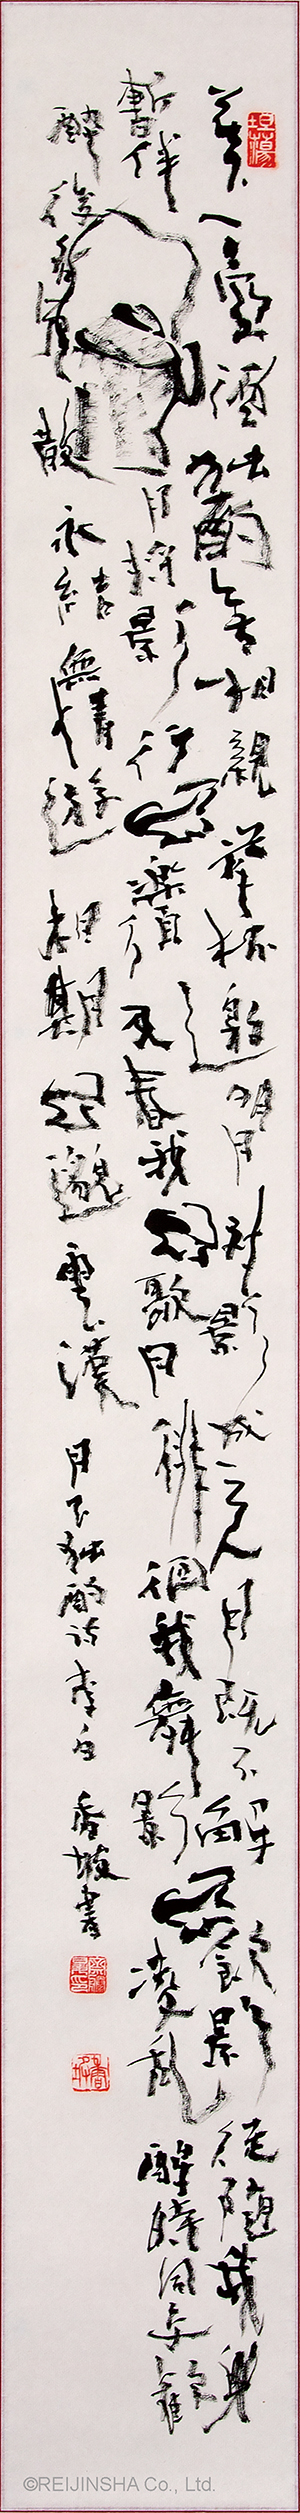 花下一壺酒独酌無相親挙杯邀明月対影成三人月既不解飲影徒随我身
暫伴月将影行樂須及春我歌月徘徊我舞影凌乱醒時同交歡
酔後各分散永結無情遊相期邈雲漢 月下独酌詩李白 香坡書
©REIJINSHA Co., Ltd.